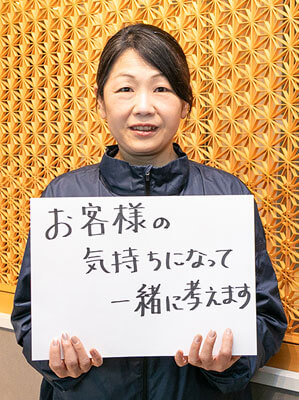 お客様の
気持ちになって
一緒に考えます